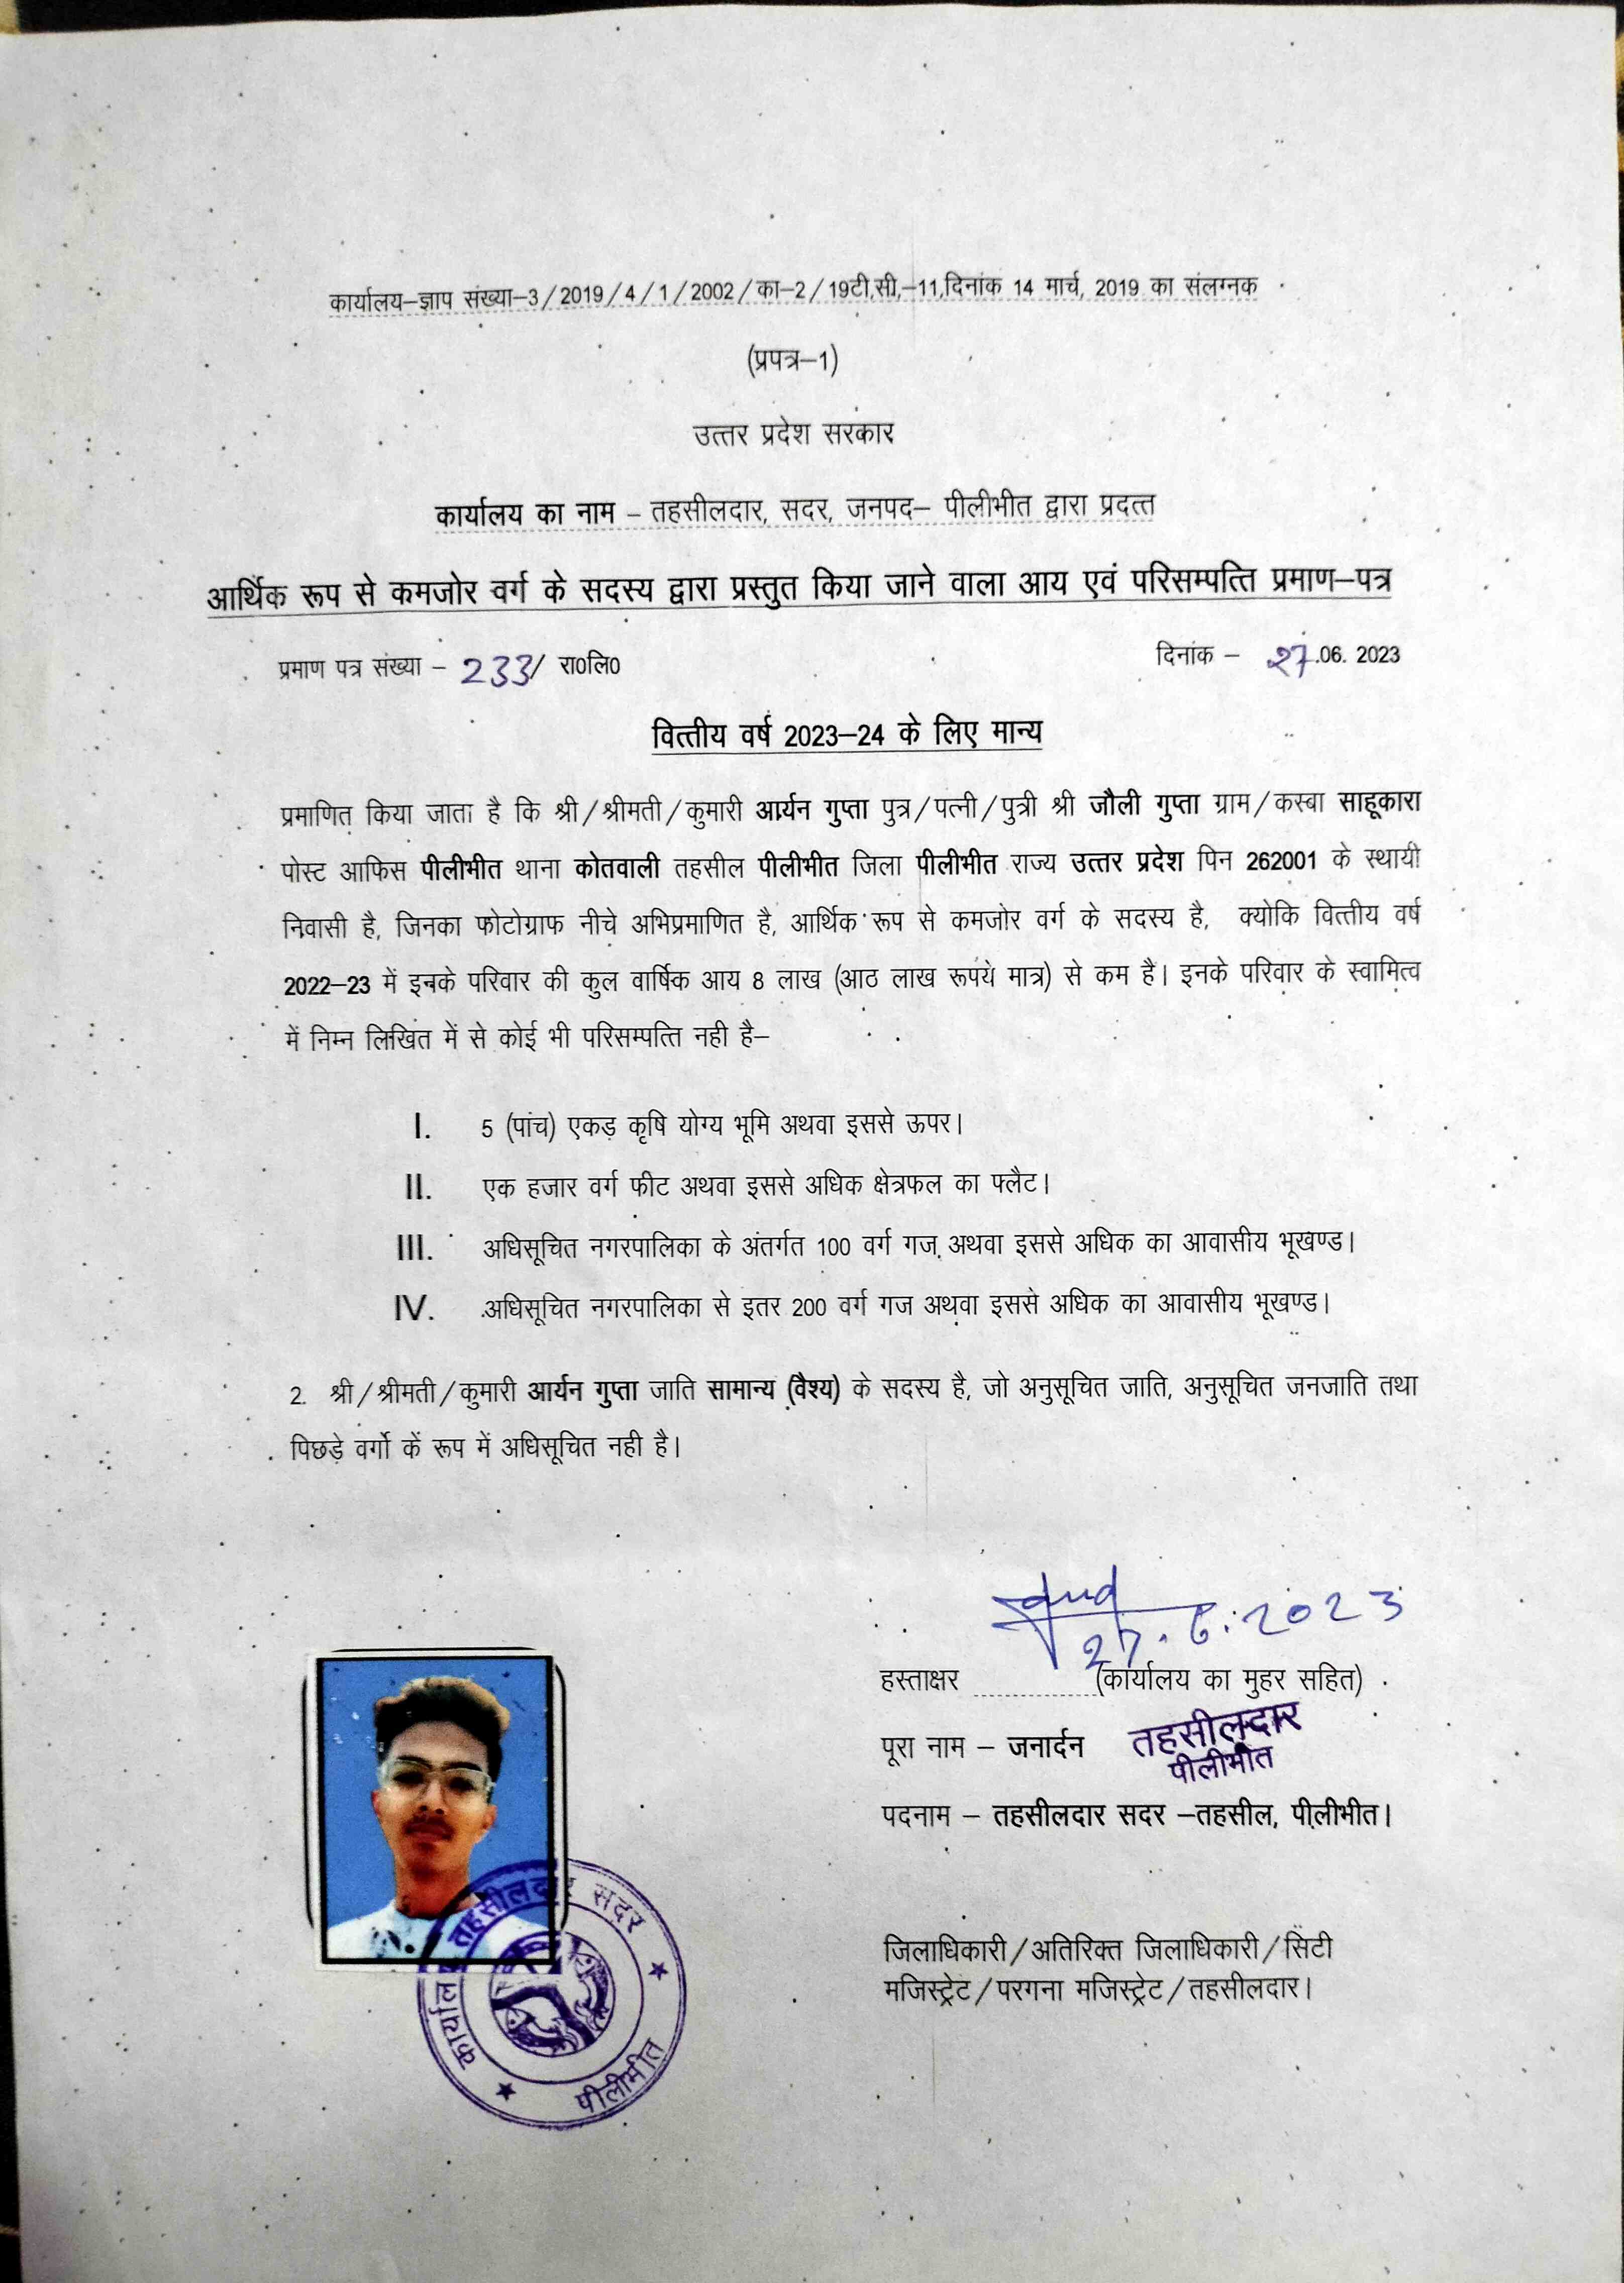 कार्यालय–ज्ञाप संख्या–3/2019/4/1/2002/का–2/19टी,सी,–11,दिनांक 14 मार्च, 2019 का संलग्नक
(प्रपत्र–1)
उत्तर प्रदेश सरकार
कार्यालय का नाम – तहसीलदार, सदर, जनपद– पीलीभीत द्वारा प्रदत्त
आर्थिक रूप से कमजोर वर्ग के सदस्य द्वारा प्रस्तुत किया जाने वाला आय एवं परिसम्पत्ति प्रमाण–पत्र
प्रमाण पत्र संख्या – 233/ रा0लि0 दिनांक – 27.06. 2023
वित्तीय वर्ष 2023–24 के लिए मान्य
प्रमाणित किया जाता है कि श्री/श्रीमती/कुमारी आर्यन गुप्ता पुत्र/पत्नी/पुत्री श्री जौली गुप्ता ग्राम/कस्बा साहूकारा
पोस्ट आफिस पीलीभीत थाना कोतवाली तहसील पीलीभीत जिला पीलीभीत राज्य उत्तर प्रदेश पिन 262001 के स्थायी
निवासी है, जिनका फोटोग्राफ नीचे अभिप्रमाणित है, आर्थिक रूप से कमजोर वर्ग के सदस्य है, क्योकि वित्तीय वर्ष
2022–23 में इनके परिवार की कुल वार्षिक आय 8 लाख (आठ लाख रूपये मात्र) से कम है। इनके परिवार के स्वामित्व
में निम्न लिखित में से कोई भी परिसम्पत्ति नही है–
I. 5 (पांच) एकड़ कृषि योग्य भूमि अथवा इससे ऊपर।
II. एक हजार वर्ग फीट अथवा इससे अधिक क्षेत्रफल का फ्लैट।
III. अधिसूचित नगरपालिका के अंतर्गत 100 वर्ग गज अथवा इससे अधिक का आवासीय भूखण्ड।
IV. अधिसूचित नगरपालिका से इतर 200 वर्ग गज अथवा इससे अधिक का आवासीय भूखण्ड।
2. श्री/श्रीमती/कुमारी आर्यन गुप्ता जाति सामान्य (वैश्य) के सदस्य है, जो अनुसूचित जाति, अनुसूचित जनजाति तथा
पिछड़े वर्गो कें रूप में अधिसूचित नही है।
27.6.2023
हस्ताक्षर ............(कार्यालय का मुहर सहित)
पूरा नाम – जनार्दन
तहसीलदार
पीलीभीत
पदनाम – तहसीलदार सदर –तहसील, पीलीभीत।
जिलाधिकारी/अतिरिक्त जिलाधिकारी/सिटी
मजिस्ट्रेट/परगना मजिस्ट्रेट/तहसीलदार।
तहसीलदार सदर
पीलीभीत